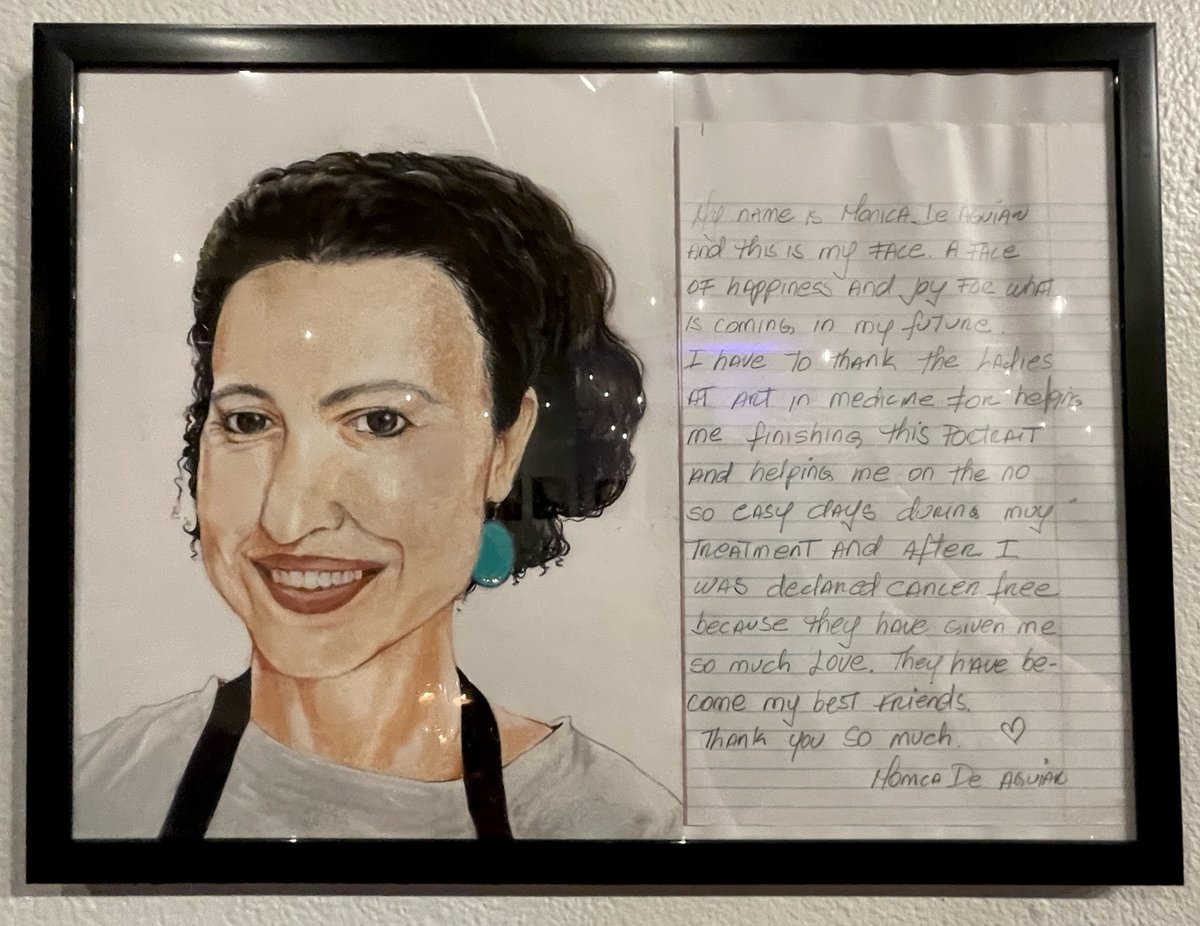 My name is Monica De Aguiar
And this is my face. A face
of happiness and joy for what
is coming in my future.
I have to thank the ladies
at Art in medicine for helping
me finishing this portrait
and helping me on the no
so easy days during muy
treatment and after I
was declared cancer free
because they have given me
so much love. They have be-
come my best friends.
Thank you so much. ♡
Monica De Aguiar